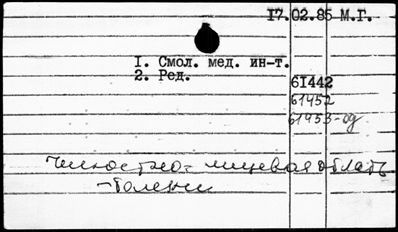 17.02.85 М.Г.
1. Смол. мед. ин-т.
2. Ред.
61442
61452
61953-од
Челюстно-лицевая область
-болезни